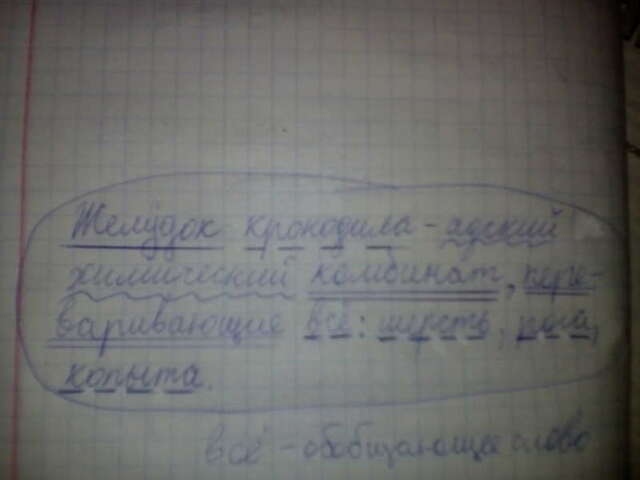 Желудок крокодила - адский
химический комбинат, пере-
варивающие всё: шерсть, рога,
копыта.
всё - обобщающее слово